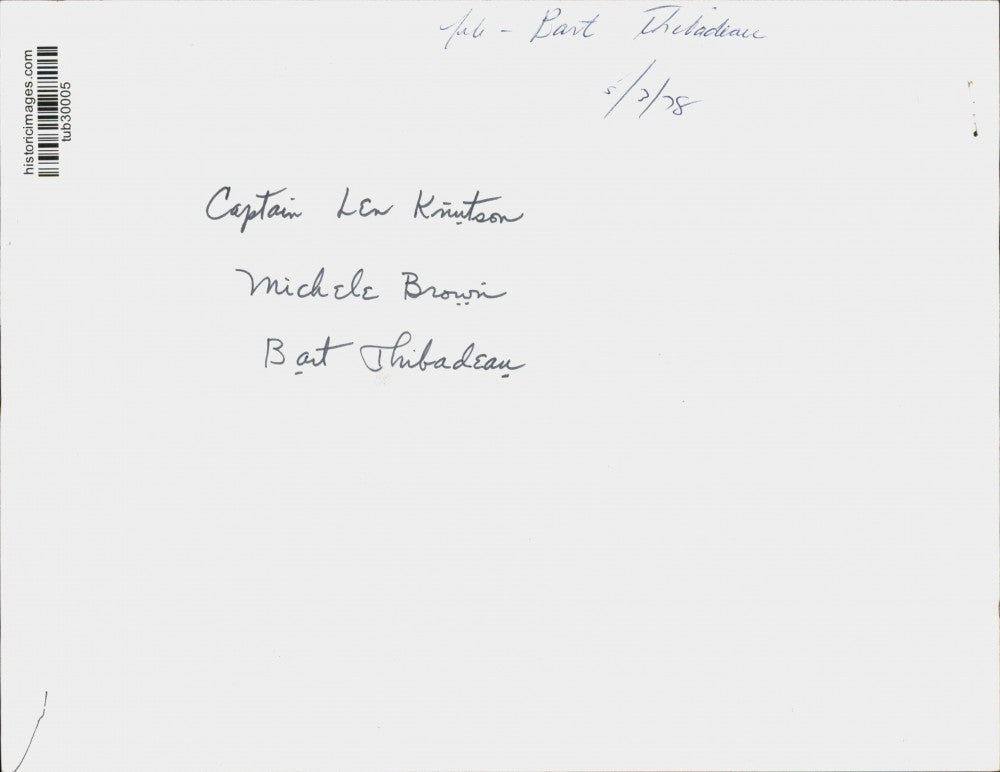 Bart Thibadeau
5/3/78
historicimages.com
tub30005
Captain Len Knutson
Michele Brown
Bart Thibadeau